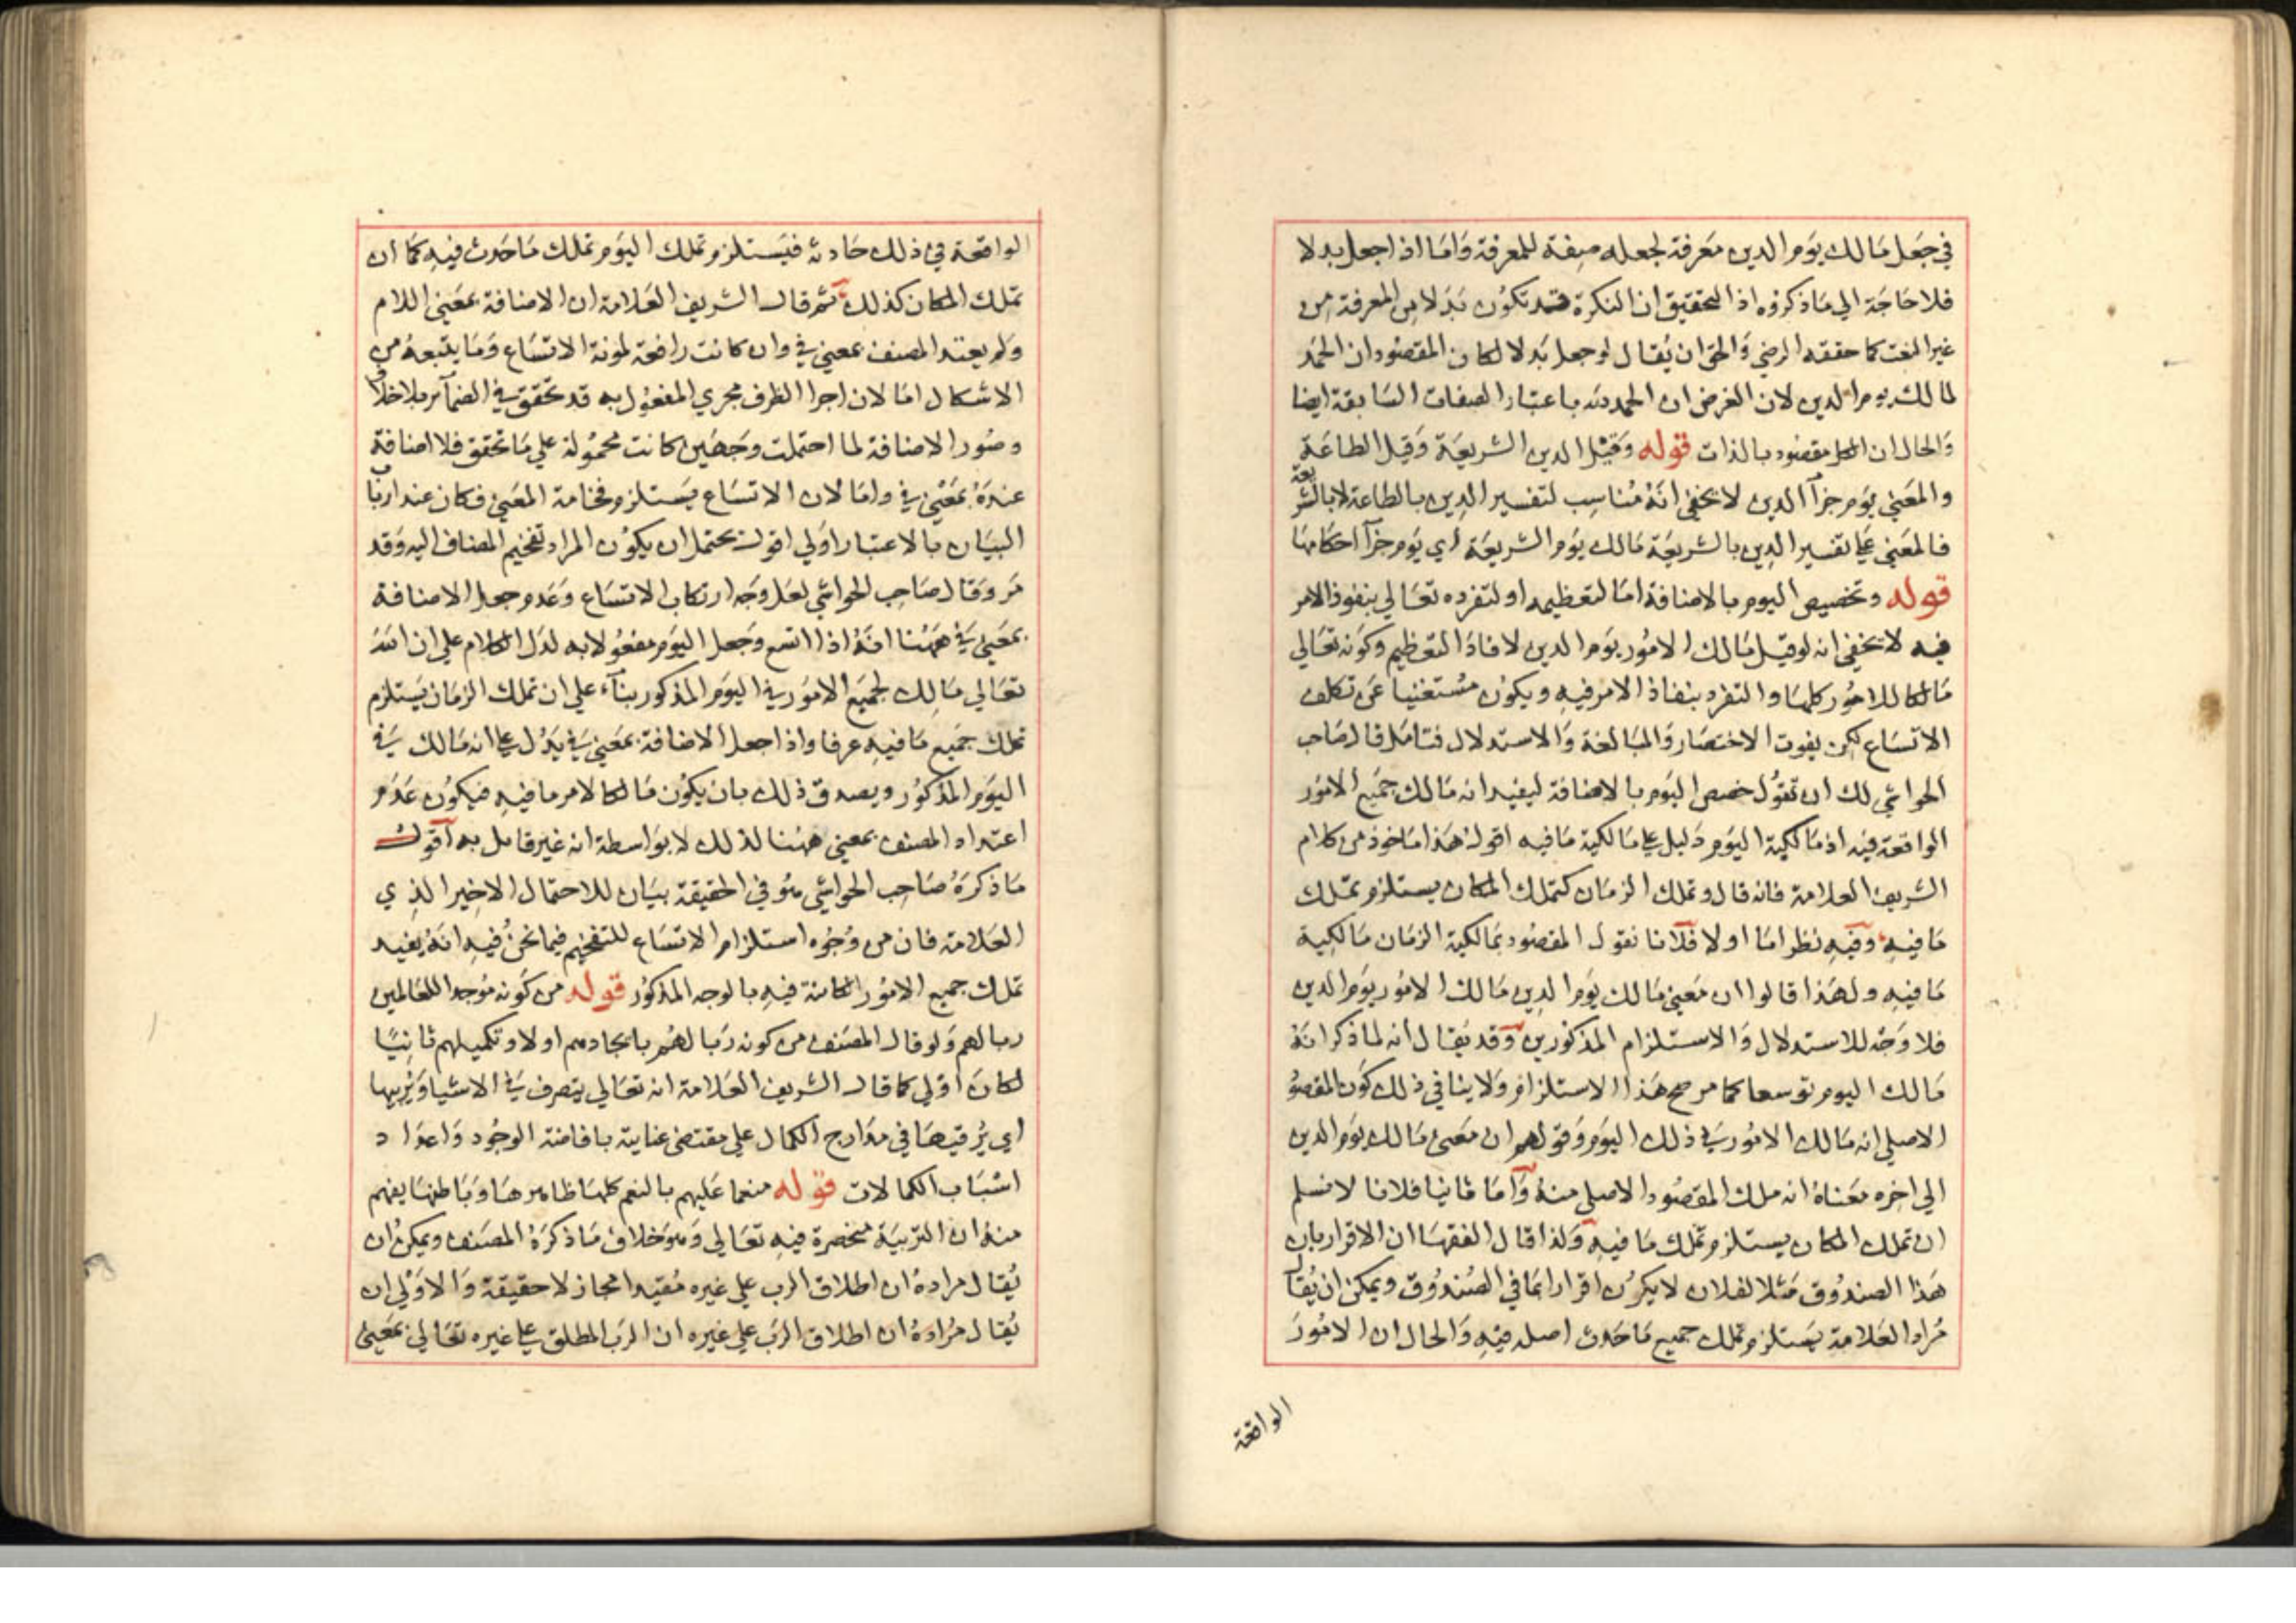 في جعل مالك يوم الدين معرفة لجعله صفة للمعرفة واما اذا جعل بدلا
فلا حاجة الي ما ذكروه اذ التحقيق ان النكرة قد تكون بدلا من المعرفة من
غير النعت كما حققه الرضي والحق ان يقال لو جعل بدلا لكان المقصود ان الحمد
لمالك يوم الدين لان الغرض ان الحمد لله باعتبار الصفات السابقة ايضا
والحال ان الكل مقصود بالذات قوله وقيل الدين الشريعة وقيل الطاعة
والمعني يوم جزآ الدين لا يخفي انه مناسب لتفسير الدين بالطاعة لا بالشريعة
فالمعني علي تفسير الدين بالشريعة مالك يوم الشريعة اي يوم جزآ احكامها
قوله وتخصيص اليوم بالاضافة اما لتعظيمه او لتفرده تعالي بنفوذ الامر
فيه لا يخفي انه لو قيل مالك الامور يوم الدين لافاد التعظيم وكونه تعالي
مالكا للامور كلها والتفرد بنفاذ الامر فيه ويكون مستغنيا عن تكلف
الاتساع لكن يفوت الاختصار والمبالغة والاستدلال فتامل قال صاحب
الحواشي لك ان تقول خصص اليوم بالاضافة ليفيد انه مالك جميع الامور
الواقعة فيه اذ مالكية اليوم دليل علي مالكية ما فيه اقول هذا ماخوذ من كلام
الشريف العلامة فانه قال وتملك الزمان كتملك المكان يستلزم تملك
ما فيه وفيه نظر اما اولا فلانا نقول المقصود بمالكية الزمان مالكية
ما فيه ولهذا قالوا ان معني مالك يوم الدين مالك الامور يوم الدين
فلا وجه للاستدلال والاستلزام المذكورين وقد يقال انه لما ذكر انه
مالك اليوم توسعا كما مر صح هذا الاستلزام ولا ينافي ذلك كون المقصو
الاصلي انه مالك الامور في ذلك اليوم وقولهم ان معني مالك يوم الدين
الي اخره معناه انه ملك المقصود الاصلي منه واما ثانيا فلانا لا نسلم
ان تملك المكان يستلزم تملك ما فيه ولذا قال الفقها ان الاقرار بان
هذا الصندوق مثلا لفلان لا يكون اقرارا بما في الصندوق ويمكن ان يقال
مراد العلامة يستلزم تملك جميع ما حدث اصله فيه والحال ان الامور
الواقعة
الواقعة في ذلك حادثة فيستلزم تملك اليوم تملك ما حدث فيه كما ان
تملك المكان كذلك ثم قال الشريف العلامة ان الاضافة بمعني اللام
ولم يعتد المصنف بمعني في وان كانت رافعة لمونة الاتساع وما يتبعه من
الاشكال اما لان اجرا الظرف مجري المفعول به قد تحقق في الضمآئر بلا خلاف
وصور الاضافة لما احتملت وجهين كانت محمولة علي ما تحقق فلا اضافة
عنده بمعني في واما لان الاتساع يستلزم فخامة المعني فكان عند ارباب
البيان بالاعتبار اولي اقول يحتمل ان يكون المراد تفخيم المضاف اليه وقد
مر وقال صاحب الحواشي لعل وجه ارتكاب الاتساع وعدم جعل الاضافة
بمعني في ههنا انه اذا اتسع وجعل اليوم مفعولا به لدل الكلام علي ان الله
تعالي مالك لجميع الامور في اليوم المذكور بنآء علي ان تملك الزمان يستلزم
تملك جميع ما فيه عرفا واذا جعل الاضافة بمعني في يدل علي انه مالك في
اليوم المذكور ويصدق ذلك بان يكون مالكا لامر ما فيه فيكون عدم
اعتداد المصنف بمعني ههنا لذلك لا بواسطة انه غير قابل به اقول
ما ذكره صاحب الحواشي هو في الحقيقة بيان للاحتمال الاخير الذي
العلامة فان من وجوه استلزام الاتساع للتفخيم فيما نحن فيه انه يفيد
تملك جميع الامور الكائنة فيه بالوجه المذكور قوله من كونه موجد اللعالمين
ربا لهم ولو قال المصنف من كونه ربا لهم بايجادهم اولا وتكميلهم ثانيا
لكان اولي كما قال الشريف العلامة انه تعالي يتصرف في الاشيا ويربيها
اي يرقيها في مدارج الكمال علي مقتضي عنايته بافاضة الوجود واعداد
اسباب الكمالات قوله منعما عليهم بالنعم كلها ظاهرها وباطنها يفهم
منه ان التربية منحصرة فيه تعالي وهو خلاف ما ذكره المصنف ويمكن ان
يقال مراده ان اطلاق الرب علي غيره مقيدا مجاز لا حقيقة والاولي ان
يقال مراده ان اطلاق الرب علي غيره ان الرب المطلق علي غيره تعالي بمعني